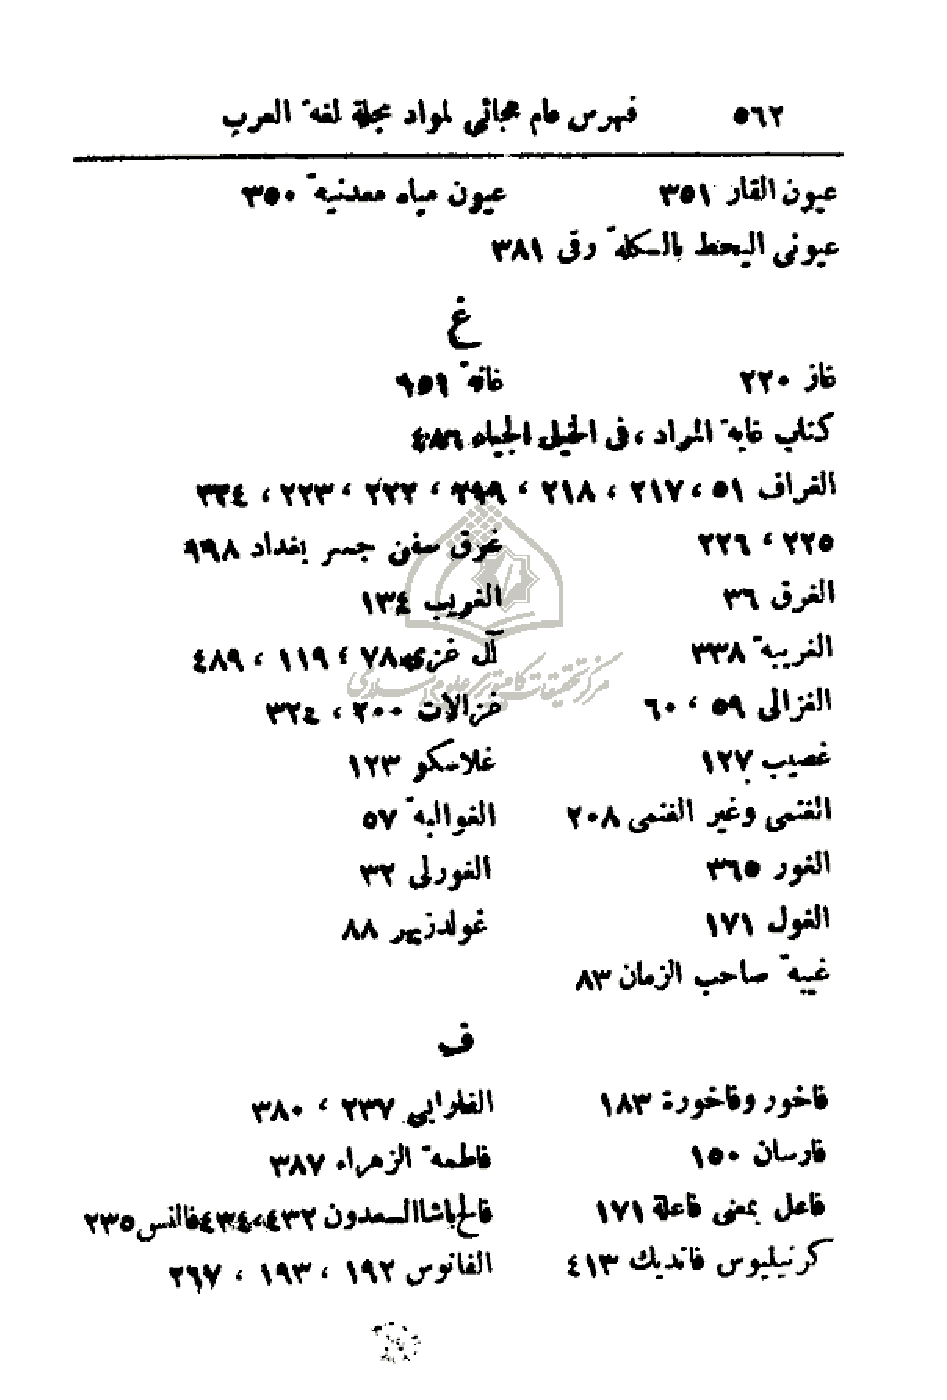 ٥٦٢ فهرس عام هجائي لمواد مجلة لغة العرب
عيون القار ٣٥١ عيون مياه معدنية ٣٥٠
عيوني اليحط بالسكلة رقى ٣٨١
غ
غاز ٢٢٠ غانة ٦٥١
كتاب غاية المراد ، في الخيل الجياد ٤٨٦
الغراف ٥١ ، ٢١٧ ، ٢١٨ ، ٢٩٩ ، ٢٢٢ ، ٢٢٣ ، ٢٢٤
٢٢٥ ، ٢٢٦ غرق سفن جسر بغداد ٩٩٨
الغرق ٣٦ الغريب ١٣٤
الغريبة ٣٣٨ آل غزي ٧٨ ، ١١٩ ، ٤٨٩
الغزالي ٥٩ ، ٦٠ غزالات ٢٠٠ ، ٣٢٤
غصيب ١٢٧ غلاسكو ١٢٣
الغنمى وغير الغنمى ٢٠٨ الغوالبة ٥٧
الغور ٣٦٥ الغورلى ٣٢
الغول ١٧١ غولدزيهر ٨٨
غيبة صاحب الزمان ٨٣
ف
فاخور وفاخورة ١٨٣ الفارابي ٢٣٧ ، ٣٨٠
فارسان ١٥٠ فاطمة الزهراء ٣٨٧
فاعل بمعنى فاعلة ١٧١ فالح باشا السعدون ٤٣٢،٤٣٤ فالنس ٢٣٥
كرنيليوس فانديك ٤١٣ الفانوس ١٩٢ ، ١٩٣ ، ٢٦٧
مركز تحقيقات كامپيوتري علوم اسلامي